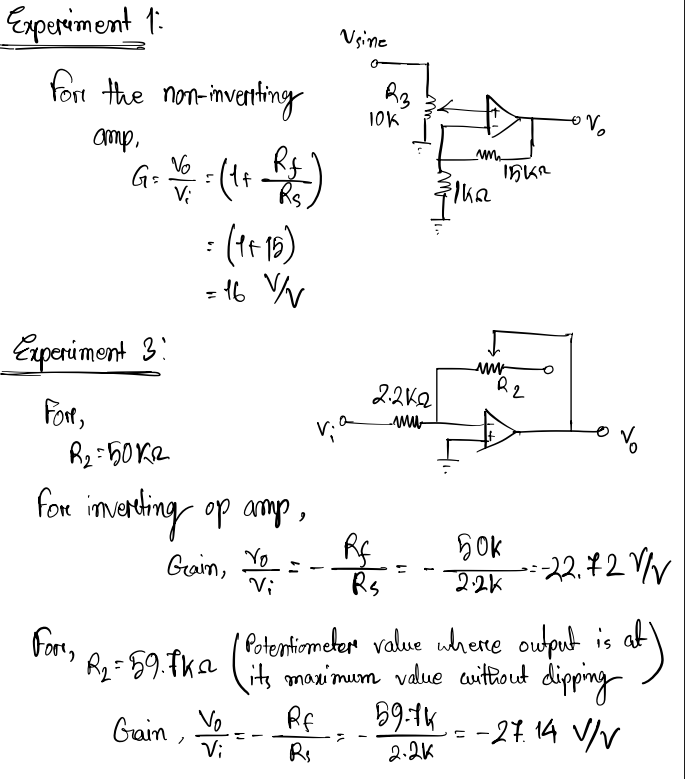 Experiment 1:
Vsine
For the non-inverting
amp,
R3
10K
+
-
Vo
15KΩ
1KΩ
G = Vo/Vi = (1 + Rf/Rs)
= (1+15)
= 16 V/V
Experiment 3:
For,
R2 = 50KΩ
R2
2.2KΩ
Vi
-
+
Vo
For inverting op amp,
Gain, Vo/Vi = - Rf/Rs = - 50K/2.2K = -22.72 V/V
For, R2 = 59.7KΩ (Potentiometer value where output is at
its maximum value without clipping)
Gain, Vo/Vi = - Rf/Rs = - 59.7K/2.2K = -27.14 V/V